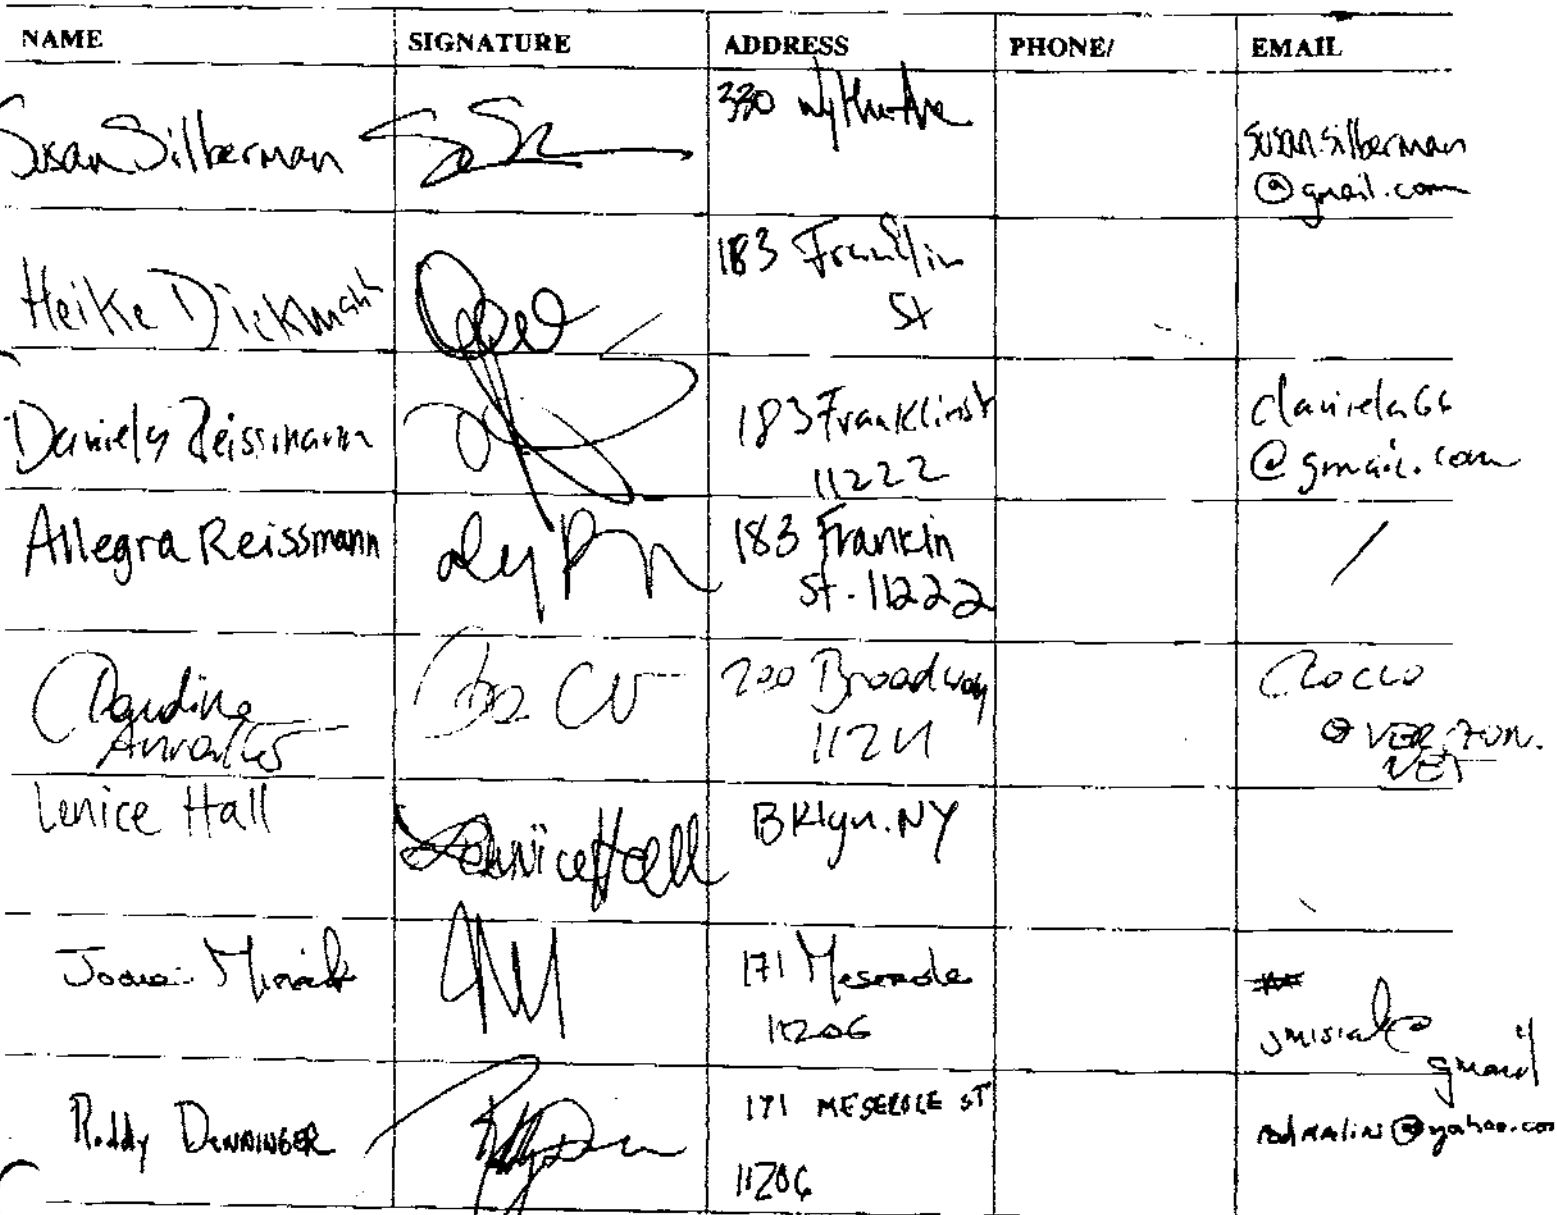 NAME SIGNATURE ADDRESS PHONE/ EMAIL
Susan Silberman 330 Wythe Ave susan.silberman
@gmail.com
Heike Dickmann 183 Franklin
St
Daniela Reissmann 183 Franklin st daniela66
11222 @gmail.com
Allegra Reissmann 183 Franklin /
St. 11222
Claudine 200 Broadway
11211 @VERIZON.
NET
Lenice Hall Lennice Hall BKlyn. NY
171 Meserole
11206 gmail
Roddy DENNINGER 171 MESEROLE ST @yahoo.co
11206